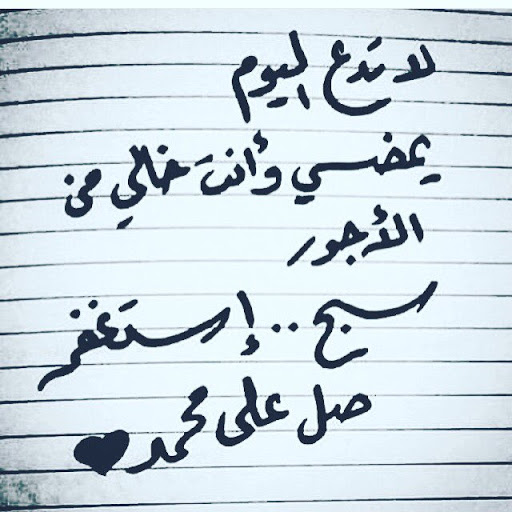 لا تدع اليوم
يمضي وأنتَ خالي من
الأجور
سبح .. إستغفر
صل على محمد ♥